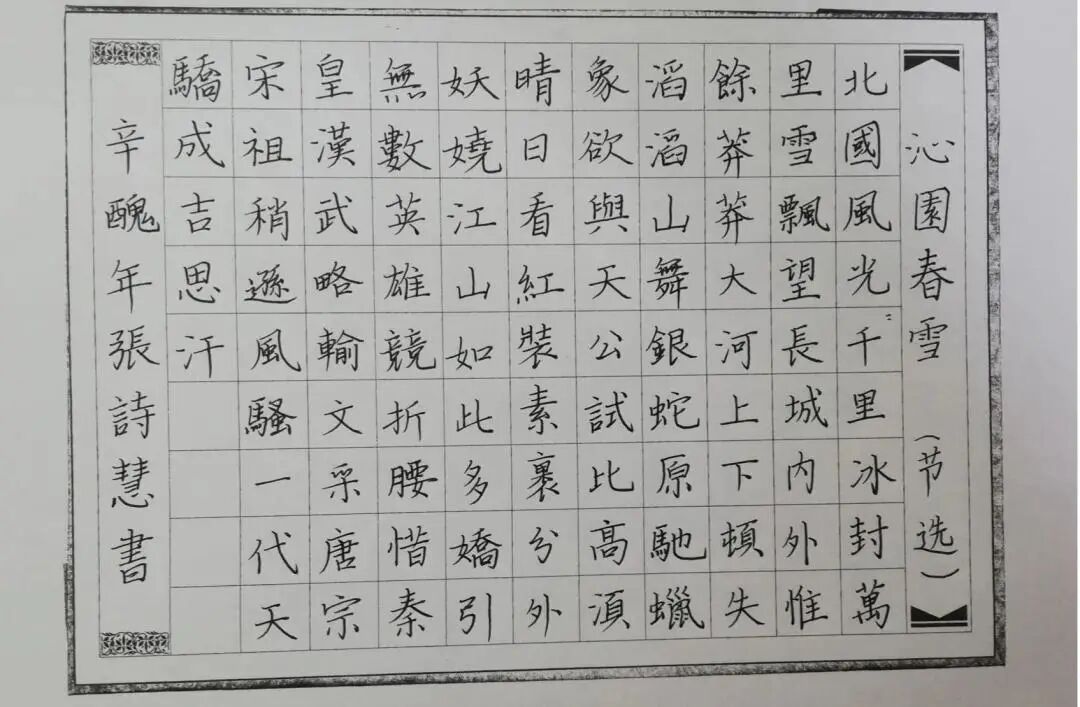 沁園春雪（节选）
北國風光千里冰封萬
里雪飄望長城内外惟
餘莽莽大河上下頓失
滔滔山舞銀蛇原馳蠟
象欲與天公試比高湏
晴日看紅裝素裹分外
妖嬈江山如此多嬌引
無數英雄競折腰惜秦
皇漢武略輸文采唐宗
宋祖稍遜風騷一代天
驕成吉思汗
辛醜年張詩慧書